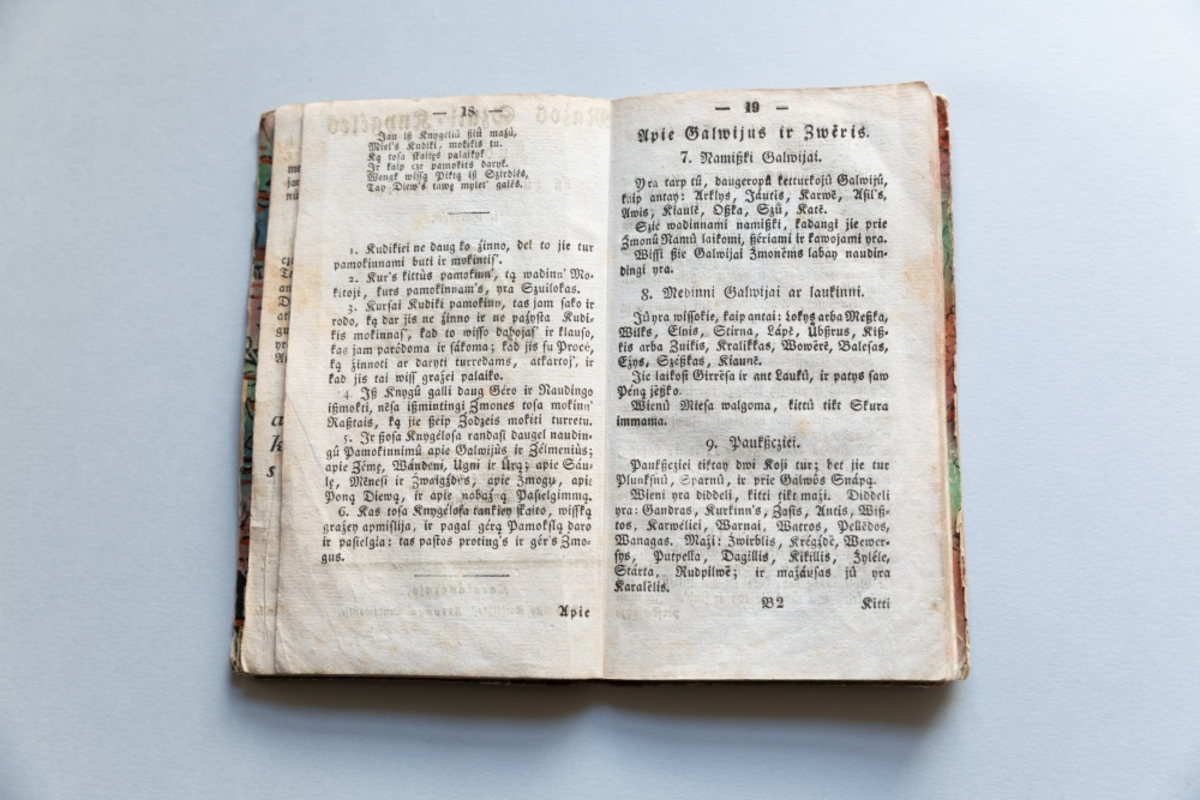 — 18 —
Jau iß Knygeliû ßiû mażû,
Miel's Kudiki, mokikis tu.
Ką tosa skaitęs palaikyk
Ir kaip cze pamokits daryk.
Wengk wissą Piktą iß Szirdies,
Tay Diew's tawę mylet' galės.
1. Kudikiei ne daug ko żinno, dėl to jie tur
pamokinnami buti ir mokintis'.
2. Kur's kittûs pamokinn', tą wadinn' Mo-
kitoji, kurs pamokinnam's, yra Szuilokas.
3. Kursai Kudiki pamokinn, tas jam sako ir
rodo, ką dar jis ne żinno ir ne pażysta Kudi-
kis mokinnas', kad to wisso dabojas' ir klauso,
kas jam paródoma ir sákoma; kad jis su Procė,
ką żinnoti ar daryti turredams, atkartoj', ir
kad jis tai wiss' grażei palaiko.
4. Iß Knygû galli daug Gėro ir Naudingo
ißmokti, nėsa ißmintingi Żmones tosa mokinn'
Raßtais, ką jie ßeip Żodzeis mokiti turretu.
5. Ir ßosa Knygėlosa randasi daugel naudin-
gû Pamokinnimû apie Galwijûs ir Żélmeniûs;
apie Żémę, Wandeni, Ugni ir Ûrą; apie Sáu-
lę, Mėnesi ir Żwaigżdes, apie Żmogu, apie
Poną Diewą, ir apie Pasielgimmą.
6. Kas tosa Knygėlosa tankiey skaito, wisską
grażey apmislija, ir pagal gėrą Pamokslą daro
ir pasielgia: tas pastos proting's ir gėr's Żmo-
gus.
Apie
— 19 —
Apie Galwijus ir Zwėris.
7. Namißki Galwijai.
Yra tarp tû, daugeropû ketturkojû Galwijû,
kaip antay: Arklys, Jáutis, Karwė, Asil's,
Awis, Kiaulė, Oßka, Szû, Katė.
Szie wadinnami namißki, kadangi jie prie
Żmonû Namû laikomi, ßėriami ir kawojami yra.
Wissi ßie Galwijai Żmonėms labay naudin-
dingi yra.
8. Medinni Galwijai ar laukinni.
Jû yra wissokie, kaip antai: Lokys arba Meßka,
Wilks, Elnis, Stirna, Lápė, Ûbßrus, Kiß-
kis arba Zuikis, Kralikkas, Wowėrė, Balesas,
Eżys, Szėßkas, Kiaunė.
Jie laikosi Girrėsa ir ant Laukû, ir patys saw
Péną jėßko.
Wienû Miesa walgoma, kittû tikt Skura
immama.
9. Paukßcziei.
Paukßcziei tiktay dwi Koji tur; bet jie tur
Plunksnû, Sparnû, ir prie Galwôs Snápą.
Wieni yra diddeli, kitti tikt mażi. Diddeli
yra: Gandras, Kurkinn's, Żasis, Antis, Wiß-
tos, Karwėliei, Warnai, Watros, Pelėdos,
Wanagas. Mażi: Żwirblis, Krėgżdė, Wewer-
sys, Putpella, Dagillis, Kikillis, Żylėle,
Stárta, Rudpilwė; ir mażáusas jû yra
Karalėlis.
B2 Kitti